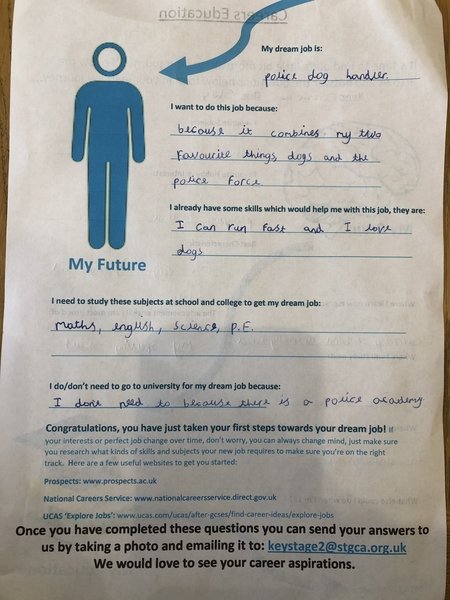 Careers Education
My dream job is:
police dog handler.
I want to do this job because:
because it combines my two
favourite things, dogs and the
police force
I already have some skills which would help me with this job, they are:
I can run fast and I love
dogs
My Future
I need to study these subjects at school and college to get my dream job:
maths, english, science, P.E.
I do/don't need to go to university for my dream job because:
I dont need to because there is a police academy
Congratulations, you have just taken your first steps towards your dream job! If
your interests or perfect job change over time, don't worry, you can always change mind, just make sure
you research what kinds of skills and subjects your new job requires to make sure you're on the right
track. Here are a few useful websites to get you started:
Prospects: www.prospects.ac.uk
National Careers Service: www.nationalcareersservice.direct.gov.uk
UCAS 'Explore Jobs': www.ucas.com/ucas/after-gcses/find-career-ideas/explore-jobs
Once you have completed these questions you can send your answers to
us by taking a photo and emailing it to: keystage2@stgca.org.uk
We would love to see your career aspirations.